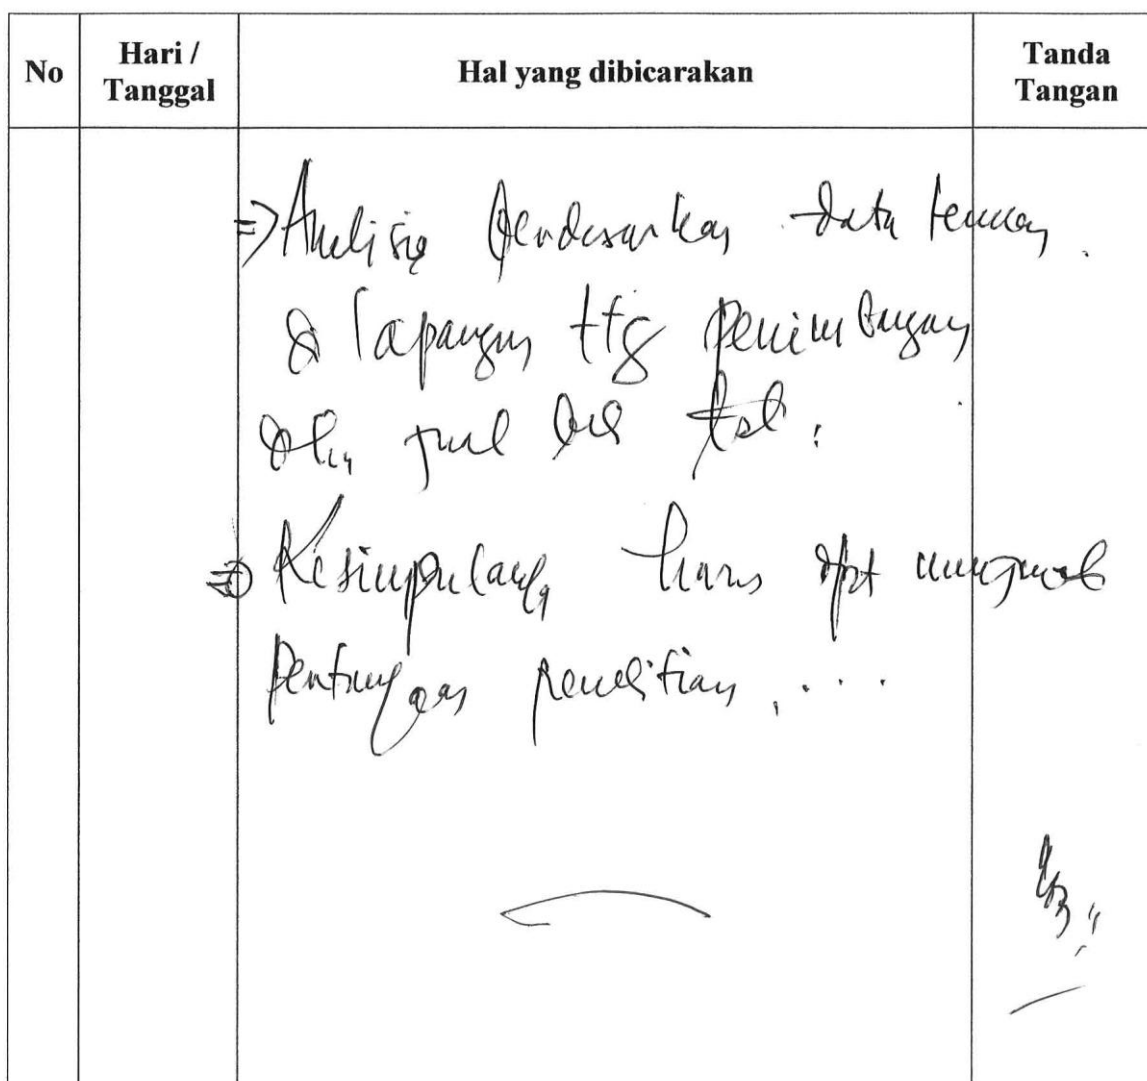 No
Hari / Tanggal
Hal yang dibicarakan
Tanda Tangan
=> Analisis berdasarkan data temuan.
di lapangan ttg penimbangan
dlm jual beli tsb.
=> Kesimpulan, harus dpt menjawab
pertanyaan penelitian....